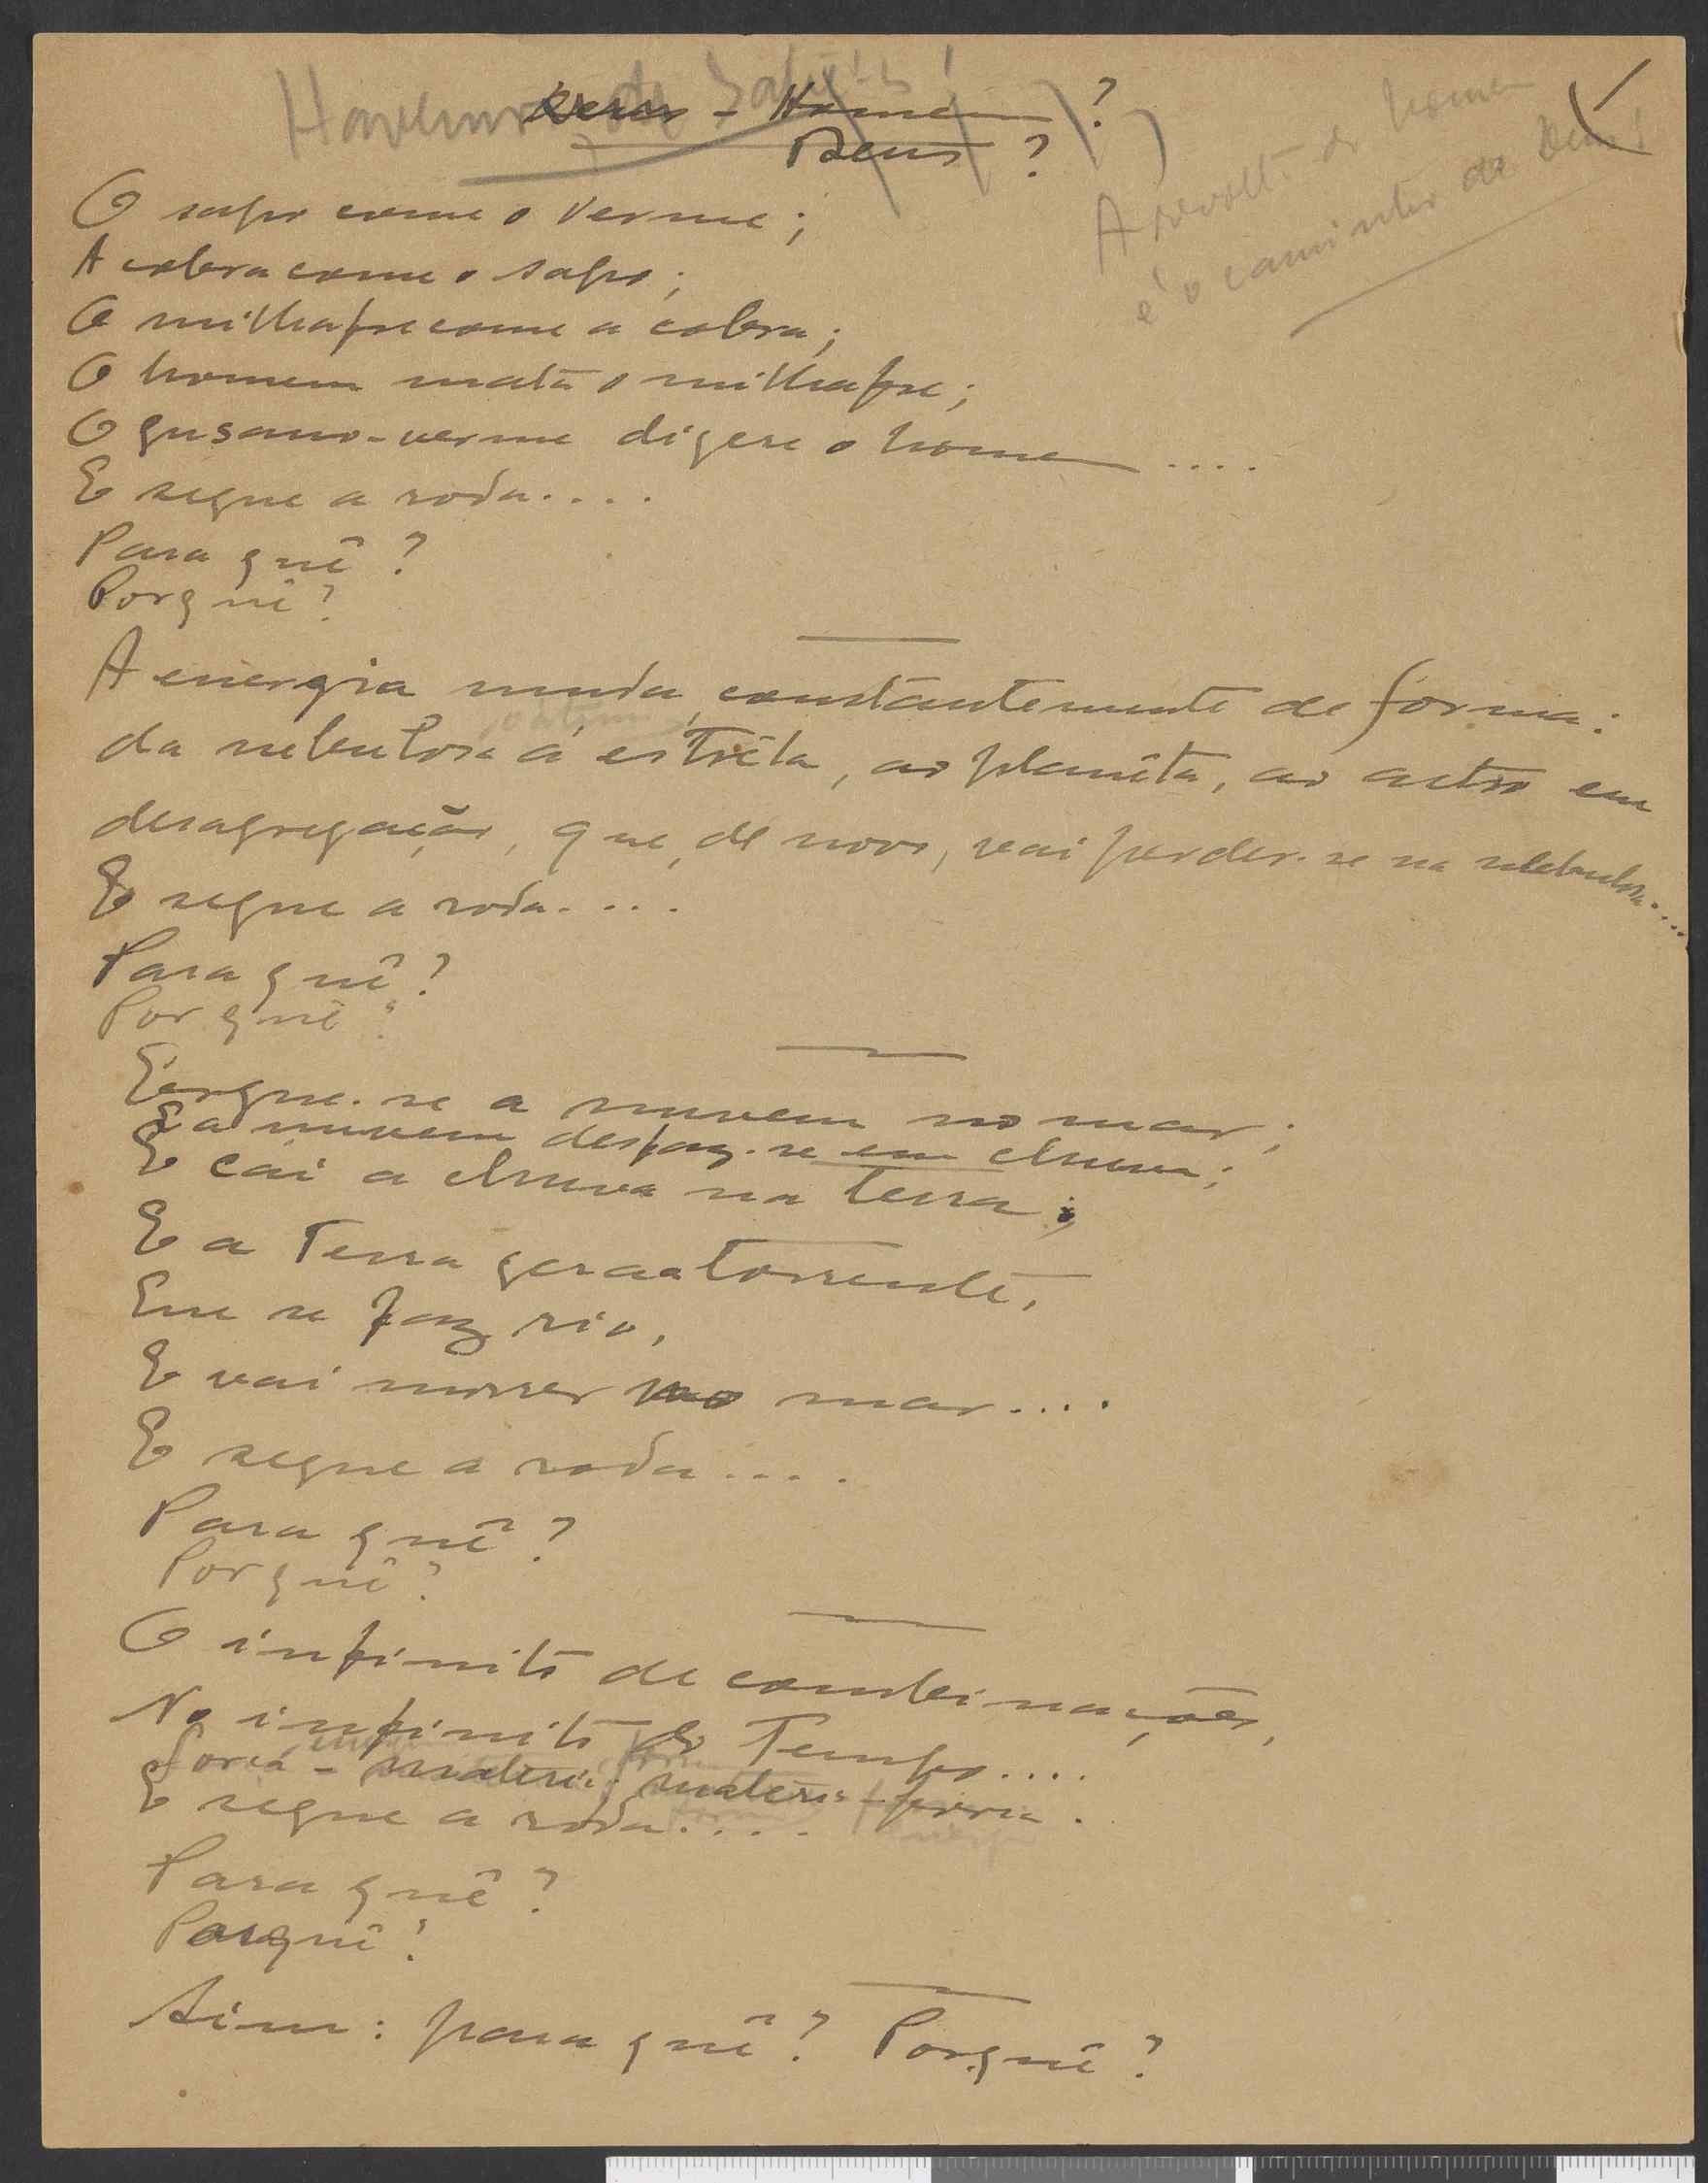 Havemos de
Deus - Homem ?
Deus ?
A revolta do homem
é o caminho de Deus!
O sapo come o verme;
A cobra come o sapo;
O milhafre come a cobra;
O homem mata o milhafre;
O gusano-verme digere o homem ....
E segue a roda....
Para quê?
Porquê?
A energia muda constantemente de forma:
da nebulosa á estrêla, ao planêta, ao astro em
desagregação, que, de novo, vai perder-se na nebulosa....
E segue a roda....
Para quê?
Porquê?
Ergue-se a nuvem no mar;
E a nuvem desfaz-se em chuva;
E cai a chuva na terra;
E a Terra gera a torrente,
Que se faz rio,
E vai morrer no mar....
E segue a roda....
Para quê?
Porquê?
O infinito de combinações,
No infinito do Tempo....
força - matéria; matéria - força.
E segue a roda....
Para quê?
Porquê?
Sim: para quê? Porquê?